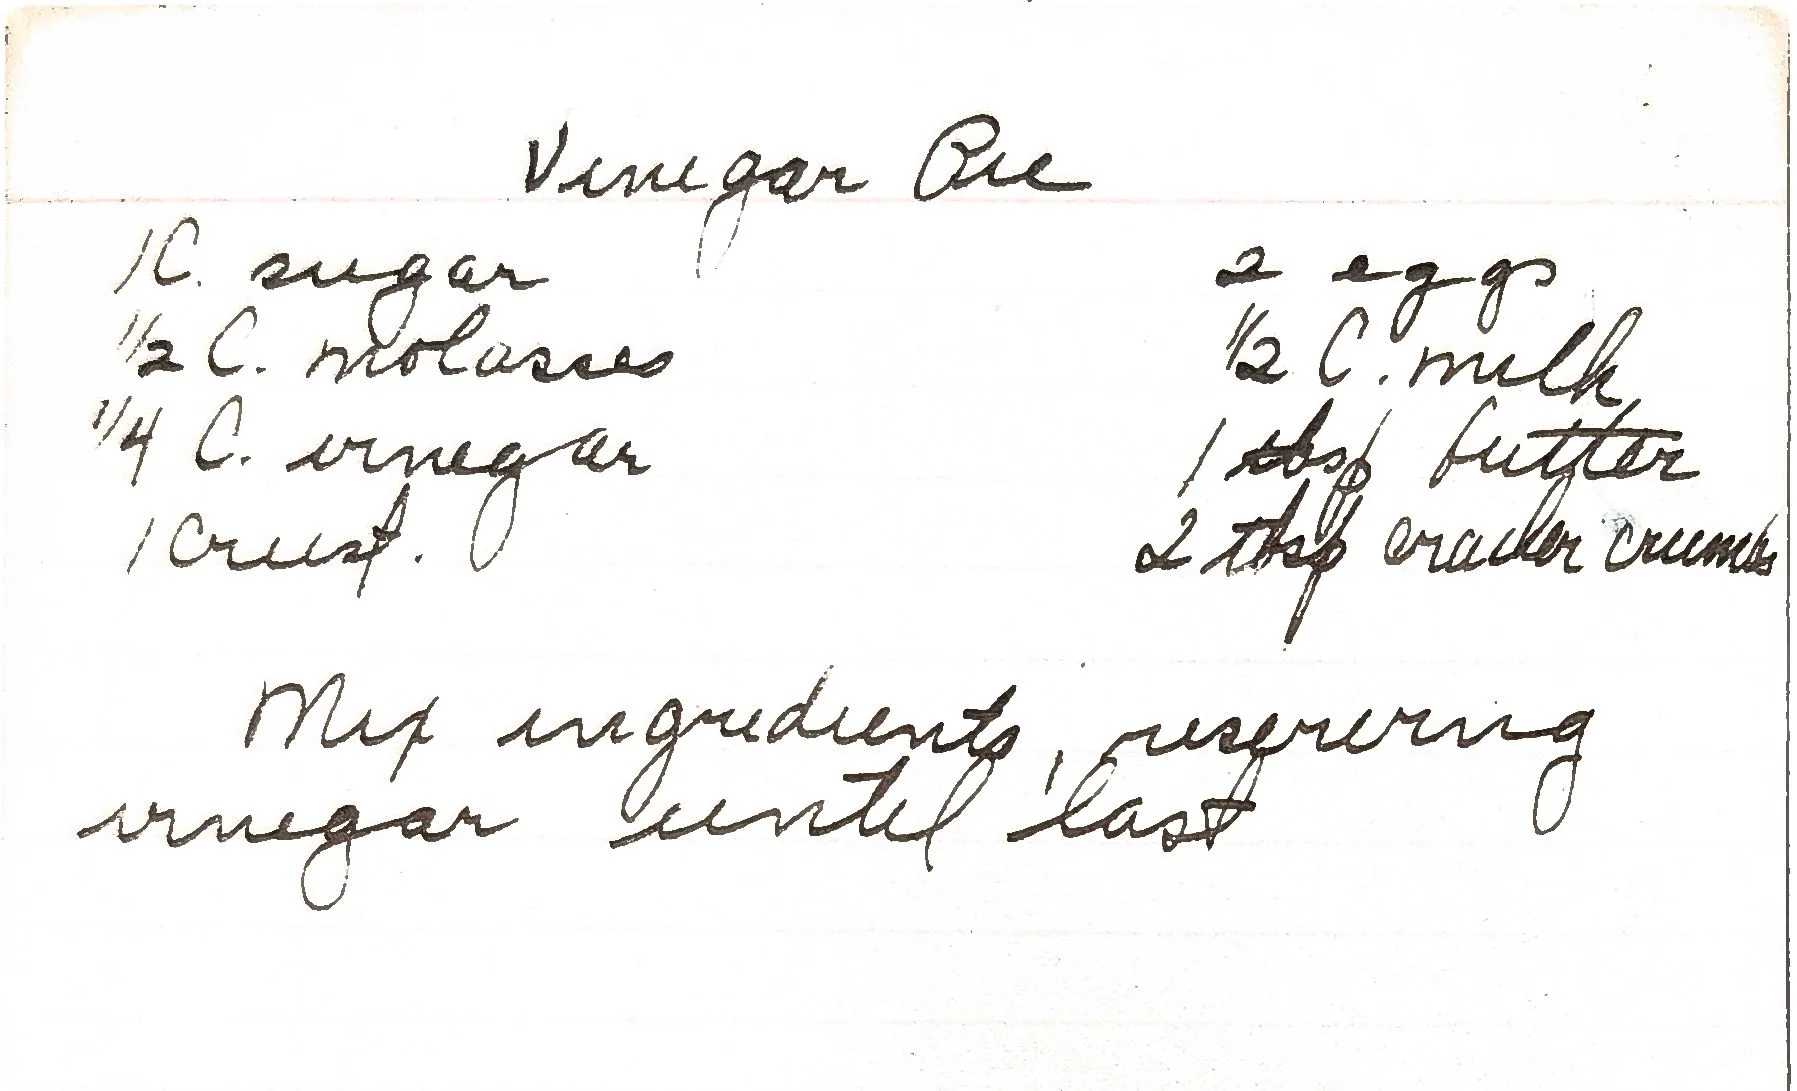 Vinegar Pie
1 C. sugar
1/2 C. molasses
1/4 C. vinegar
1 crust.
2 eggs
1/2 C. milk
1 tbsp butter
2 tbsp cracker crumbs
Mix ingredients, reserving
vinegar until last